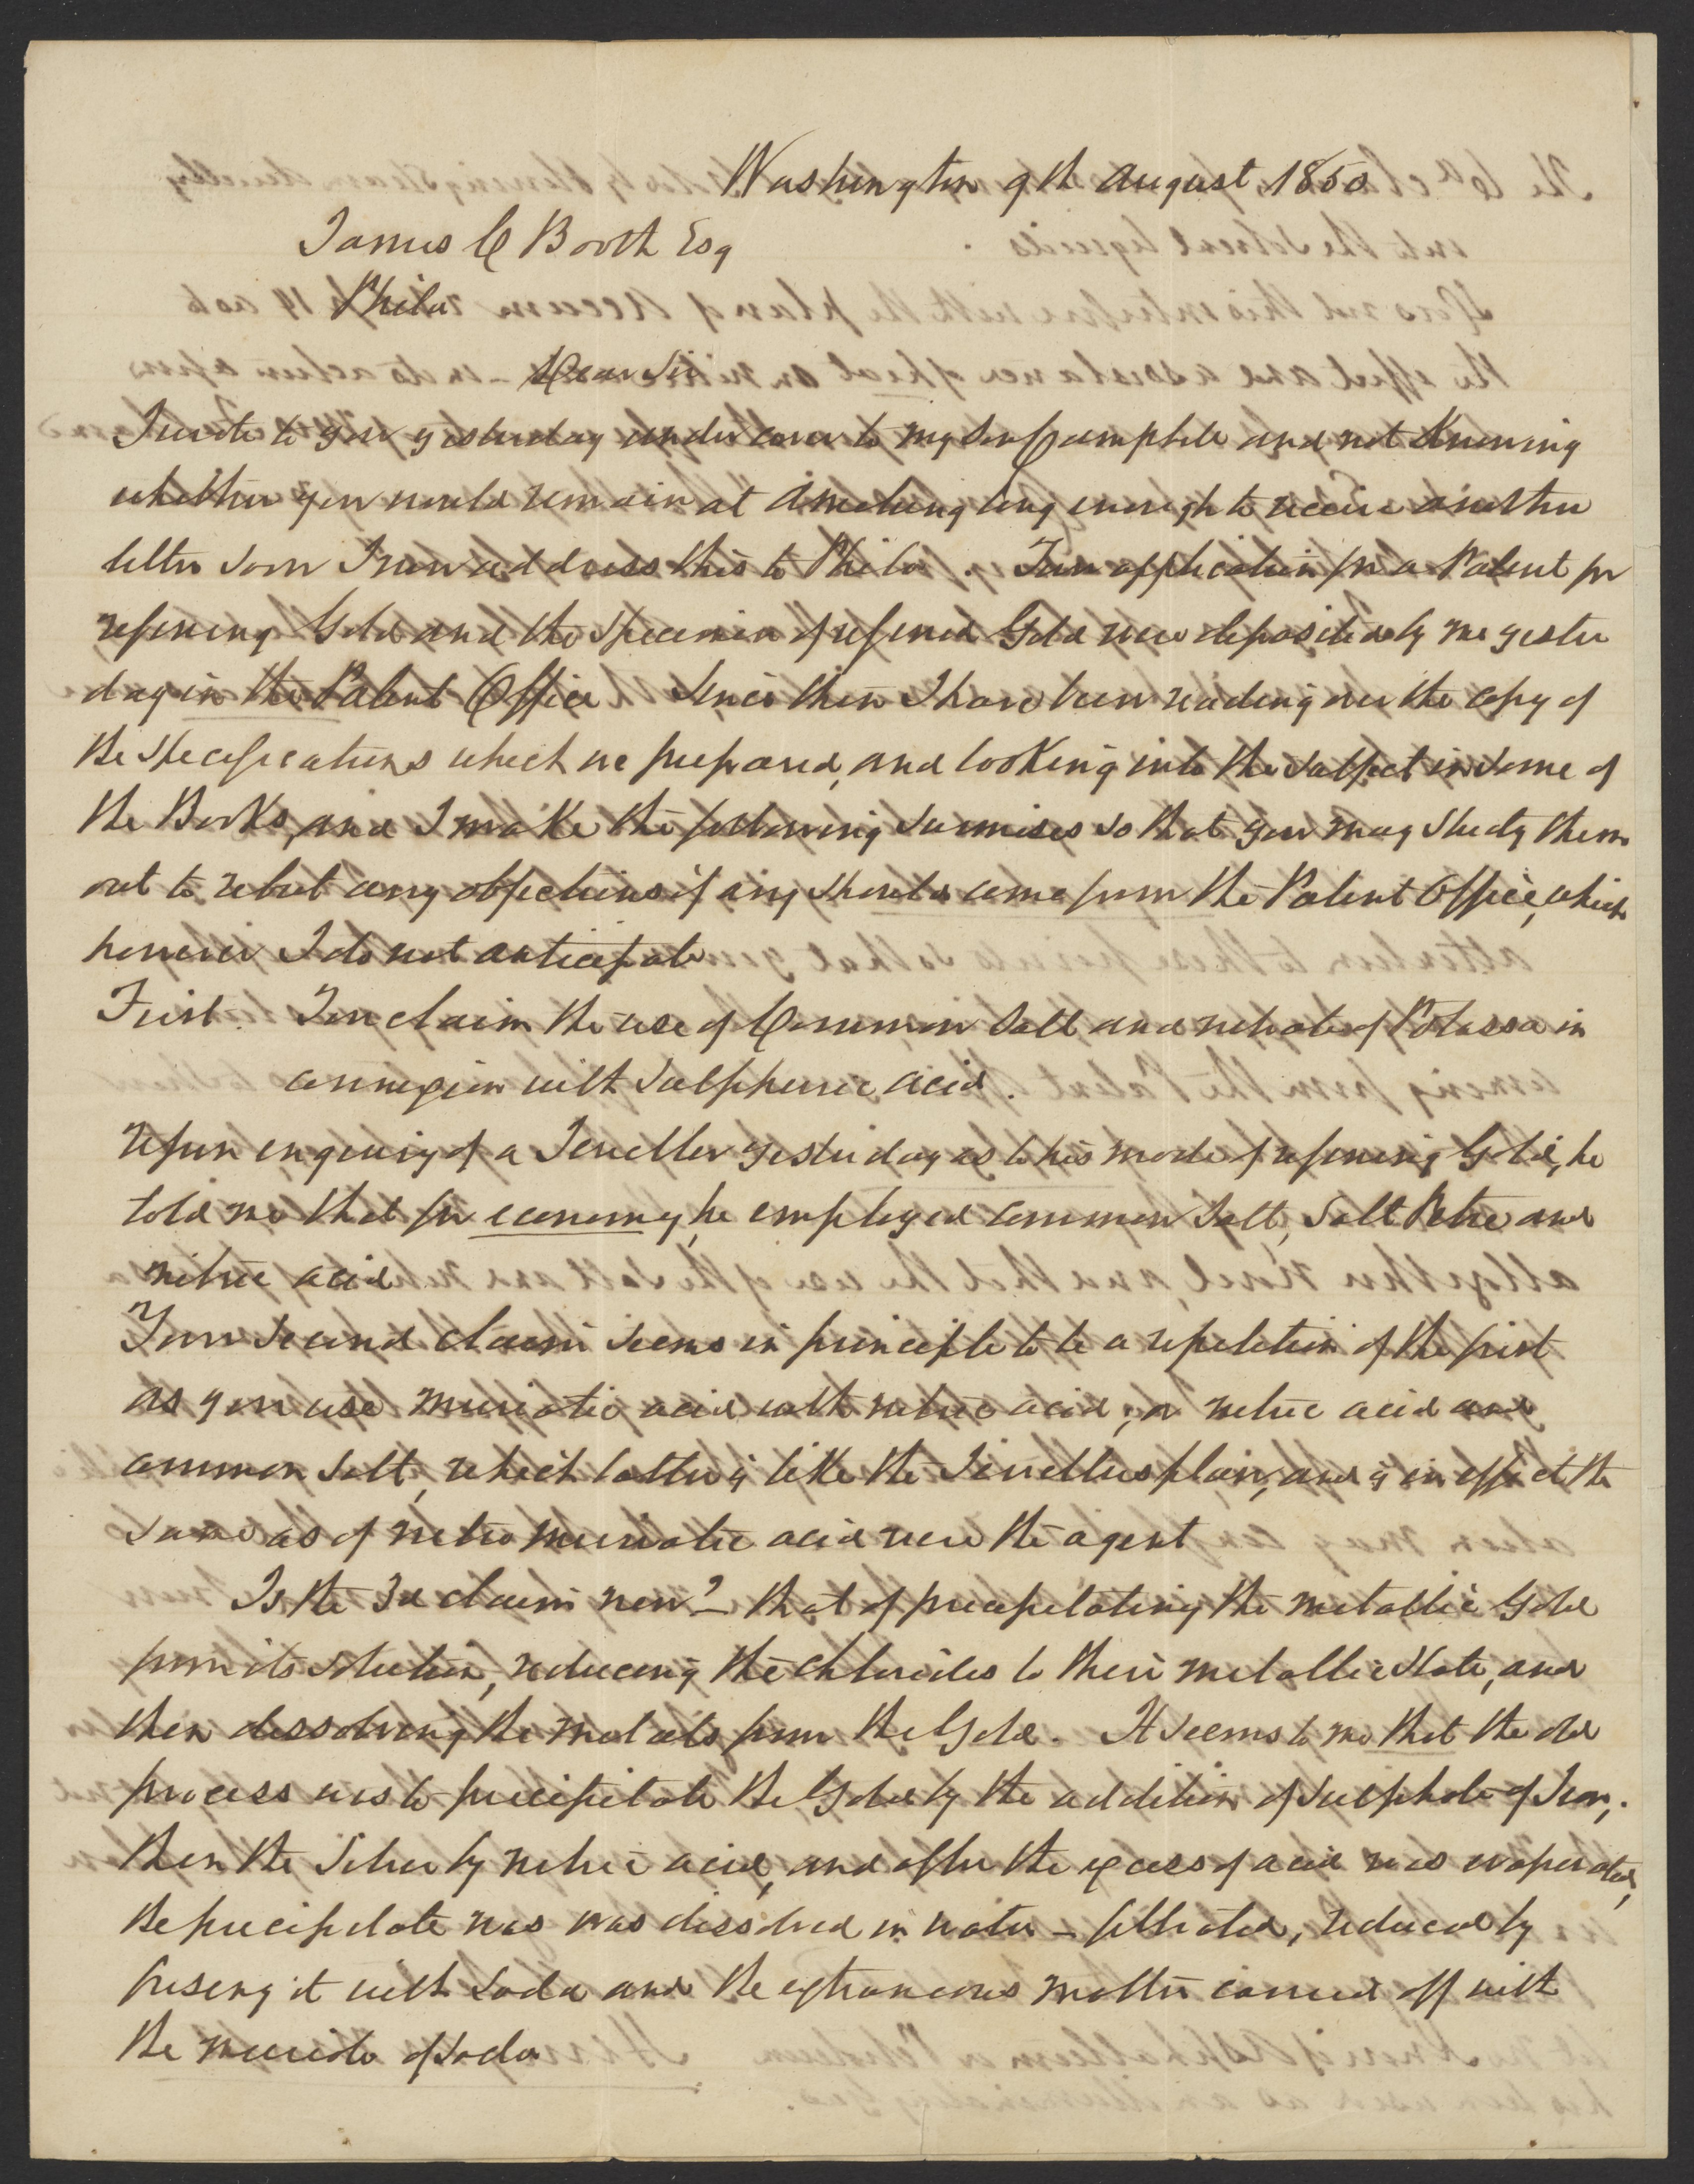 Washington 9th August 1850
James C Booth Esq
Phila
Dear Sir
I wrote to you yesterday under cover to my Son Campbell and not Knowing
whether you would remain at long enough to receive another
letter soon I now address this to Phila. Your application for a Patent for
refining Gold and the Specimen of refined Gold were deposited by me yester
day in the Patent Office Since then I have been reading over the copy of
the Specifications which we prepared, and looking into the subject in some of
the Books, and I make the following surmises so that you may study them
out to rebut any objections if any should come from the Patent Office, which
however I do not anticipate
First. You claim the use of Common Salt and nitrate of Potassa in
connexion with Sulphuric acid.
Upon enquiry of a Jeweller yesterday as to his mode of refining Gold, he
told me that for economy, he employed common Salt, Salt Petre and
nitric acid
Your Second claim seems in principle to be a repetition of the first
as you use muriatic acid with nitric acid, or nitric acid and
common salt, which latter is like the Jewellers plan, and is in effect the
same as if nitro muriatic acid were the agent
Is the 3d claim new? - that of precipitating the metallic Gold
from its solution, reducing the chlorides to their metallic State, and
then dissolving the metals from the Gold. It seems to me that the old
process was to precipitate the Gold by the addition of Sulphate of Iron,.
then the Silver by nitric acid, and after the excess of acid was evaporated,
the precipitate was was dissolved in water - filtrated, reduced by
fusing it with Soda and the extraneous matter carried off with
the muriate of Soda